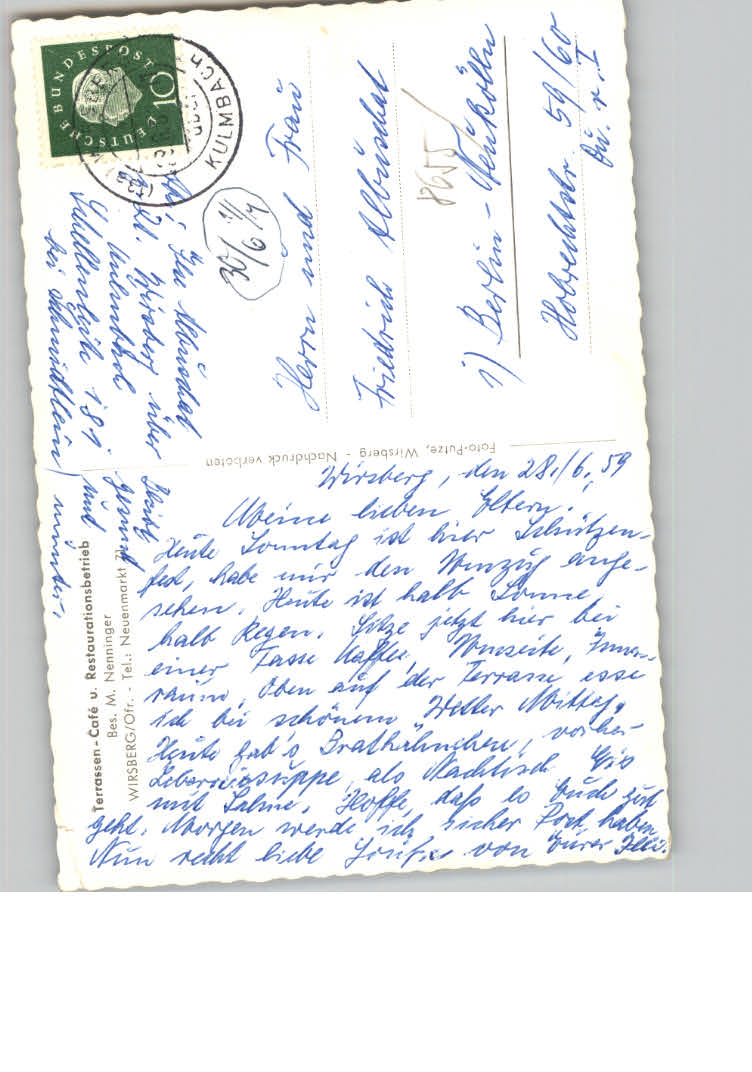 Terrassen-Café u. Restaurationsbetrieb
Bes. M. Nenninger
WIRSBERG/Ofr. - Tel.: Neuenmarkt
Foto-Putze, Wirsberg - Nachdruck verboten
Wirsberg, den 28./6. 59
Meine lieben Eltern!
Heute Sonntag ist hier Schützen-
fest, habe mir den Umzug ange-
sehen. Heute ist halb Sonne,
halb Regen. Sitze jetzt hier bei
einer Tasse Kaffee, Umseite, Innen-
raum, Oben auf der Terrasse esse
ich bei schönem Wetter Mittag,
Heute gab's Brathähnchen, vorher
Leberreissuppe, als Nachtisch Eis
mit Sahne. Hoffe, daß es Euch gut
geht. Morgen werde ich sicher Post haben
Nun recht liebe Grüße von Eurer
Bleibt
gesund
und
munter,
Ilse Albuschat
Wirsberg über
Kulmbach
181
bei Schmidtlein
DEUTSCHE BUNDESPOST
10
KULMBACH
30/6
Herrn und Frau
Friedrich Albuschat
1) Berlin - Neukölln
Hobrechtstr. 59/60
Qu. r. I
8655